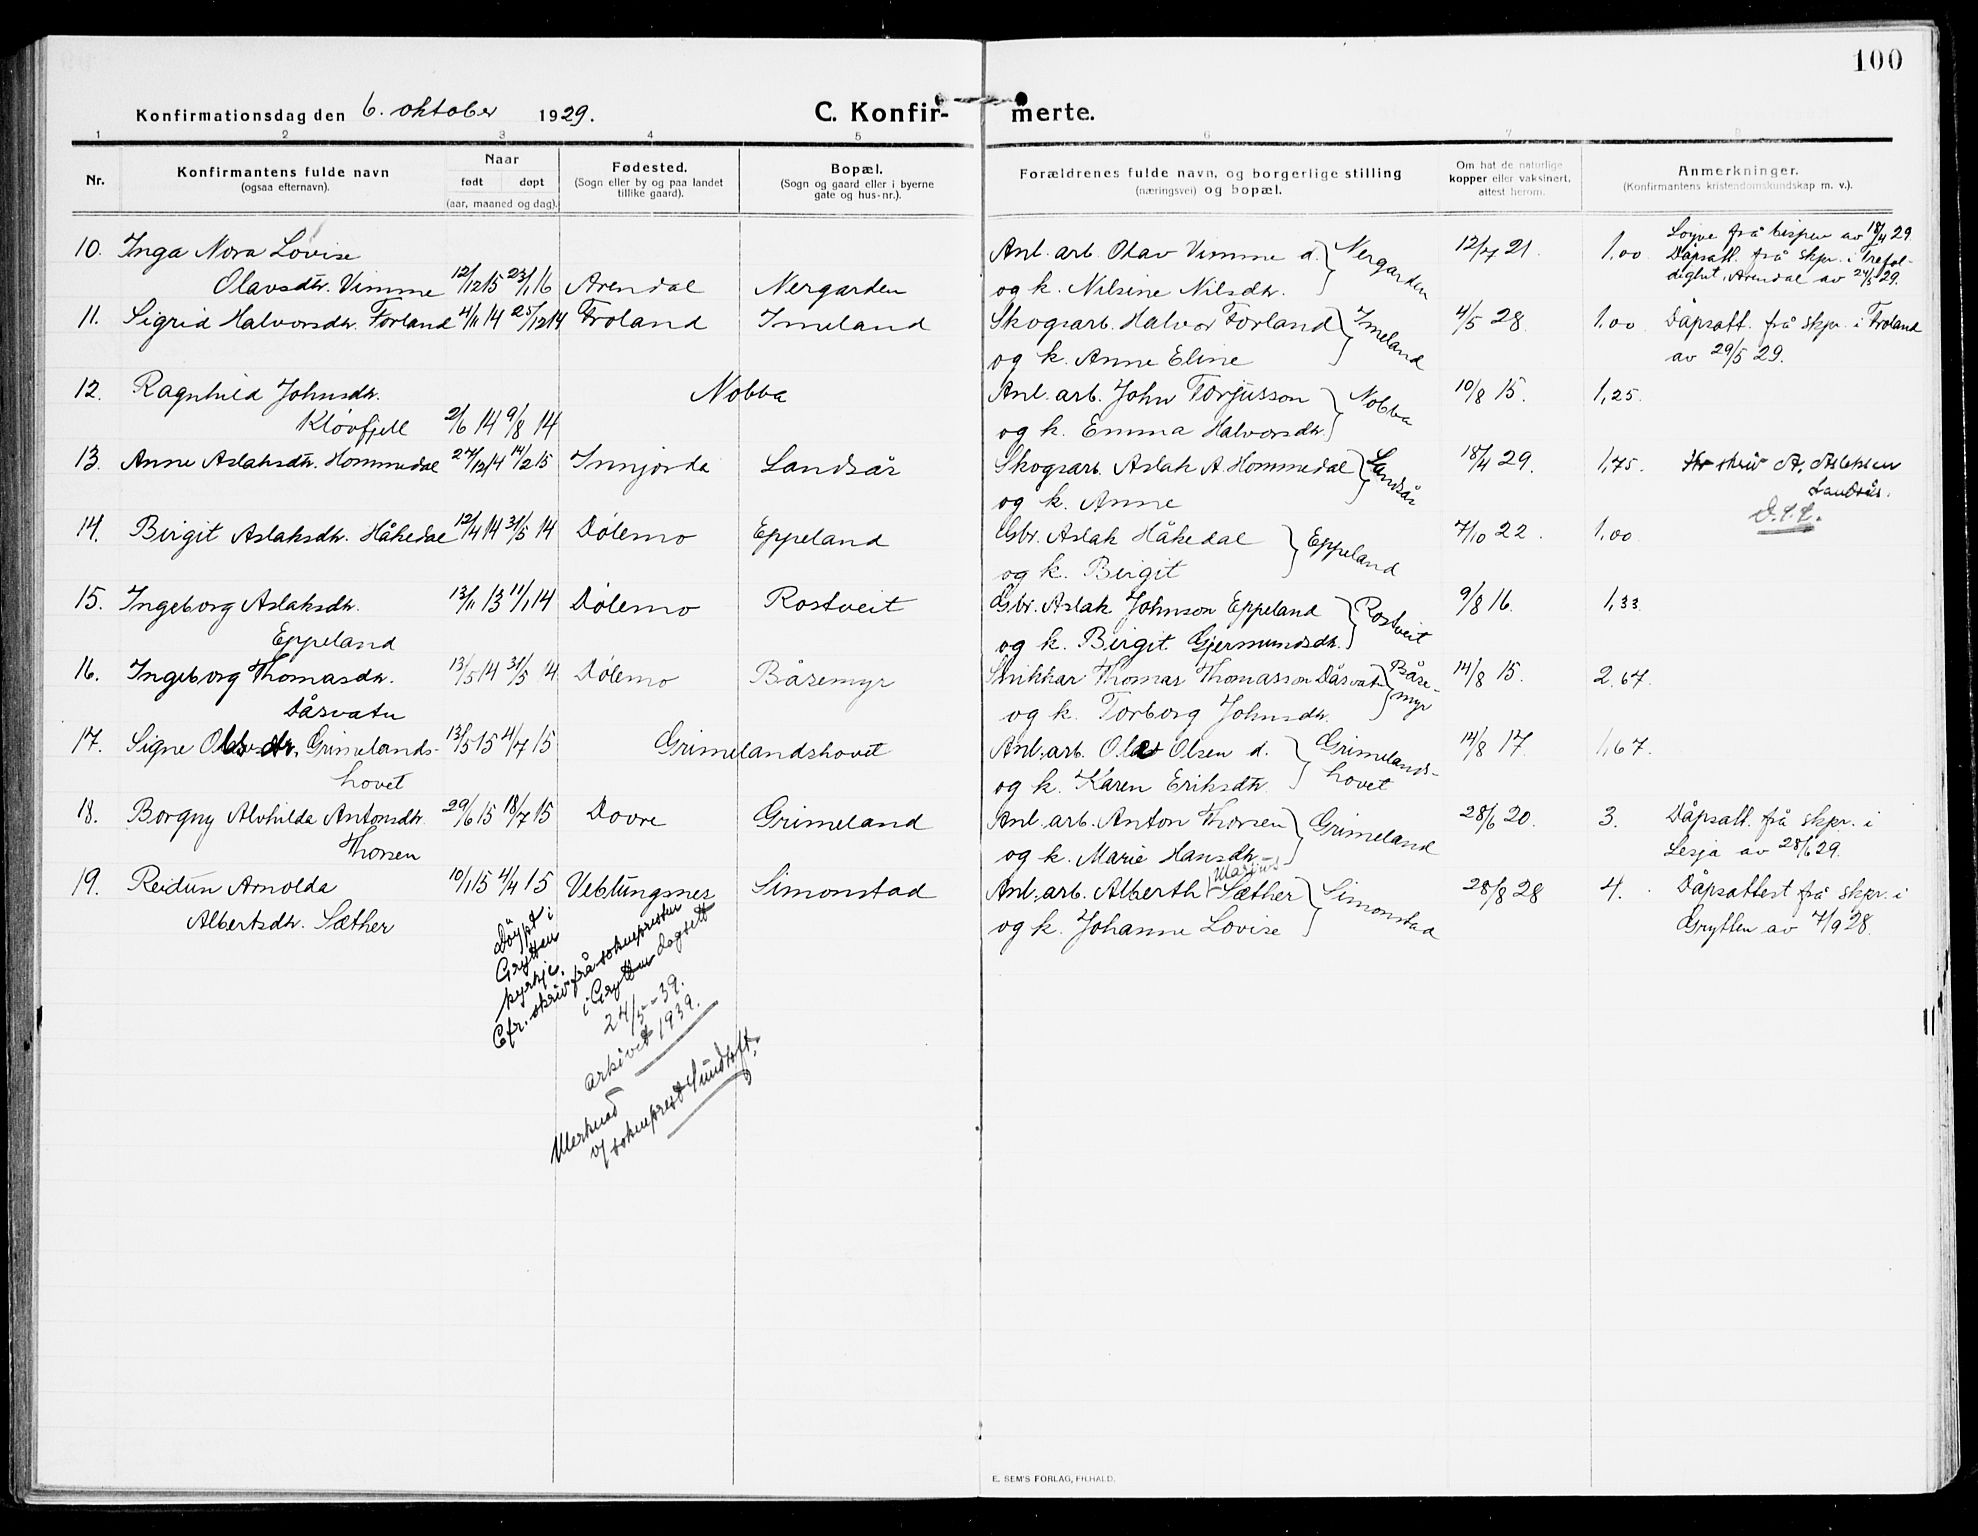 100
Konfirmationsdag den 6. oktober 1929.
C. Konfir- merte.
1 2 3 4 5 6 7 8
Nr.
Konfirmantens fulde navn
(ogsaa efternavn).
Naar
født døpt
(aar, maaned og dag).
Fødested.
(Sogn eller by og paa landet
tillike gaard).
Bopæl.
(Sogn og gaard eller i byerne
gate og hus-nr.).
Forældrenes fulde navn, og borgerlige stilling
(næringsvei) og bopæl.
Om hat de naturlige
kopper eller vaksinert,
attest herom.
Anmerkninger.
(Konfirmantens kristendomskundskap m. v.).
10. Inga Nora Lovise
Olavsdtr. Vimme 12/12 15 23/1 16 Arendal Nergarden
Anl. arb. Olav Vimme d.
og k. Nilsine Nilsdtr. } Nergarden
12/7 21. 1,00
Løyve frå bispen av 18/4 29.
Dåpsatt. frå skpr. i Trefol-
dighet, Arendal av 24/5 29.
11. Sigrid Halvorsdtr. Førland 4/11 14 25/12 14 Froland Imeland
Skogsarb. Halvor Førland
og k. Anne Eline } Imeland
4/5 28. 1,00
Dåpsatt. frå skpr. i Froland
av 29/5 29.
12. Ragnhild Johnsdtr.
Kløvfjell 2/6 14 9/8 14 Nobba
Anl. arb. John Torjusson
og k. Emma Halvorsdtr. } Nobba
10/8 15. 1,25.
13. Anne Aslaksdtr. Hommedal 27/12 14 14/2 15 Innjorda Landsår
Skogsarb. Aslak A. Hommedal
og k. Anne } Landsår
18/4 29. 1,75.
skriv A. Aslaksen
Landsås.
14. Birgit Aslaksdtr. Håkedal 12/4 14 31/5 14 Dølemo Eppeland
Gbr. Aslak Håkedal
og k. Birgit } Eppeland
7/10 22. 1,00
15. Ingeborg Aslaksdtr.
Eppeland 13/11 13 11/1 14 Dølemo Rostveit
Gbr. Aslak Johnson Eppeland
og k. Birgit Gjermundsdtr. } Rostveit
9/8 16. 1,33.
16. Ingeborg Thomasdtr.
Dåsvatn 13/5 14 31/5 14 Dølemo Båsemyr
Snikkar Thomas Thomasson Dåsvatn
og k. Torborg Johnsdtr. } Båse-
myr
14/8 15. 2.67.
17. Signe Olavsdtr. Grimelands-
hovet 13/5 15 4/7 15 Grimelandshovet
Anl. arb. Olav Olsen d.
og k. Karen Eriksdtr. } Grimelands-
hovet
14/8 17. 1,67.
18. Borgny Alvhilda Antonsdtr.
Thorsen 29/6 15 18/7 15 Dovre Grimeland
Anl. arb. Anton Thorsen
og k. Marie Hansdtr. } Grimeland
28/6 20. 3.
Dåpsatt. frå skpr. i
Lesja av 28/6 29.
19. Reidun Arnolda
Albertsdtr. Sæther 10/1 15 4/4 15 Veblungsnes Simonstad
Anl. arb. Alberth Marius Sæther
og k. Johanne Lovise } Simonstad
28/8 28 4.
Dåpsattest frå skpr. i
Grytten av 7/9 28.
Døypt i
Grytten
kyrkje.
Cfr. skriv frå sokneprsten
i Grytten dagsett
24/5-39.
arkivet 1939.
Merknad
v/ sokneprest Sundtoft.
E. SEM'S FORLAG, FR.HALD.